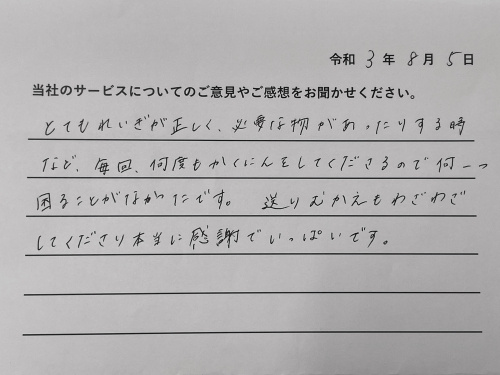 令和 3 年 8 月 5 日
当社のサービスについてのご意見やご感想をお聞かせください。
とてもれいぎが正しく、必要な物があったりする時
など、毎回、何度もかくにんをしてくださるので何一つ
困ることがなかたです。 送りむかえもわざわざ
してくださり本当に感謝でいっぱいです。